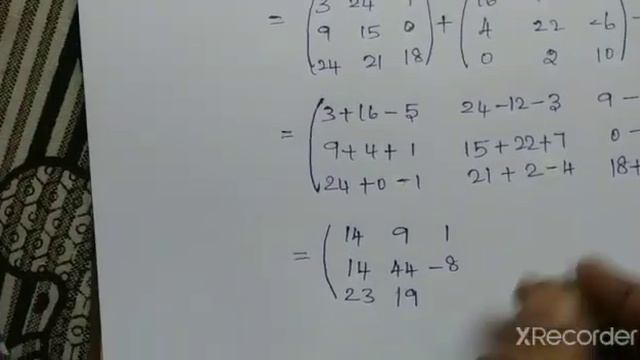 = ( 3 24
9 15 0
24 21 18 ) + ( 16
4 22 -6
0 2 10 )
= ( 3+16-5 24-12-3 9-
9+4+1 15+22+7 0-
24+0-1 21+2-4 18+
= ( 14 9 1
14 44 -8
23 19
XRecorder